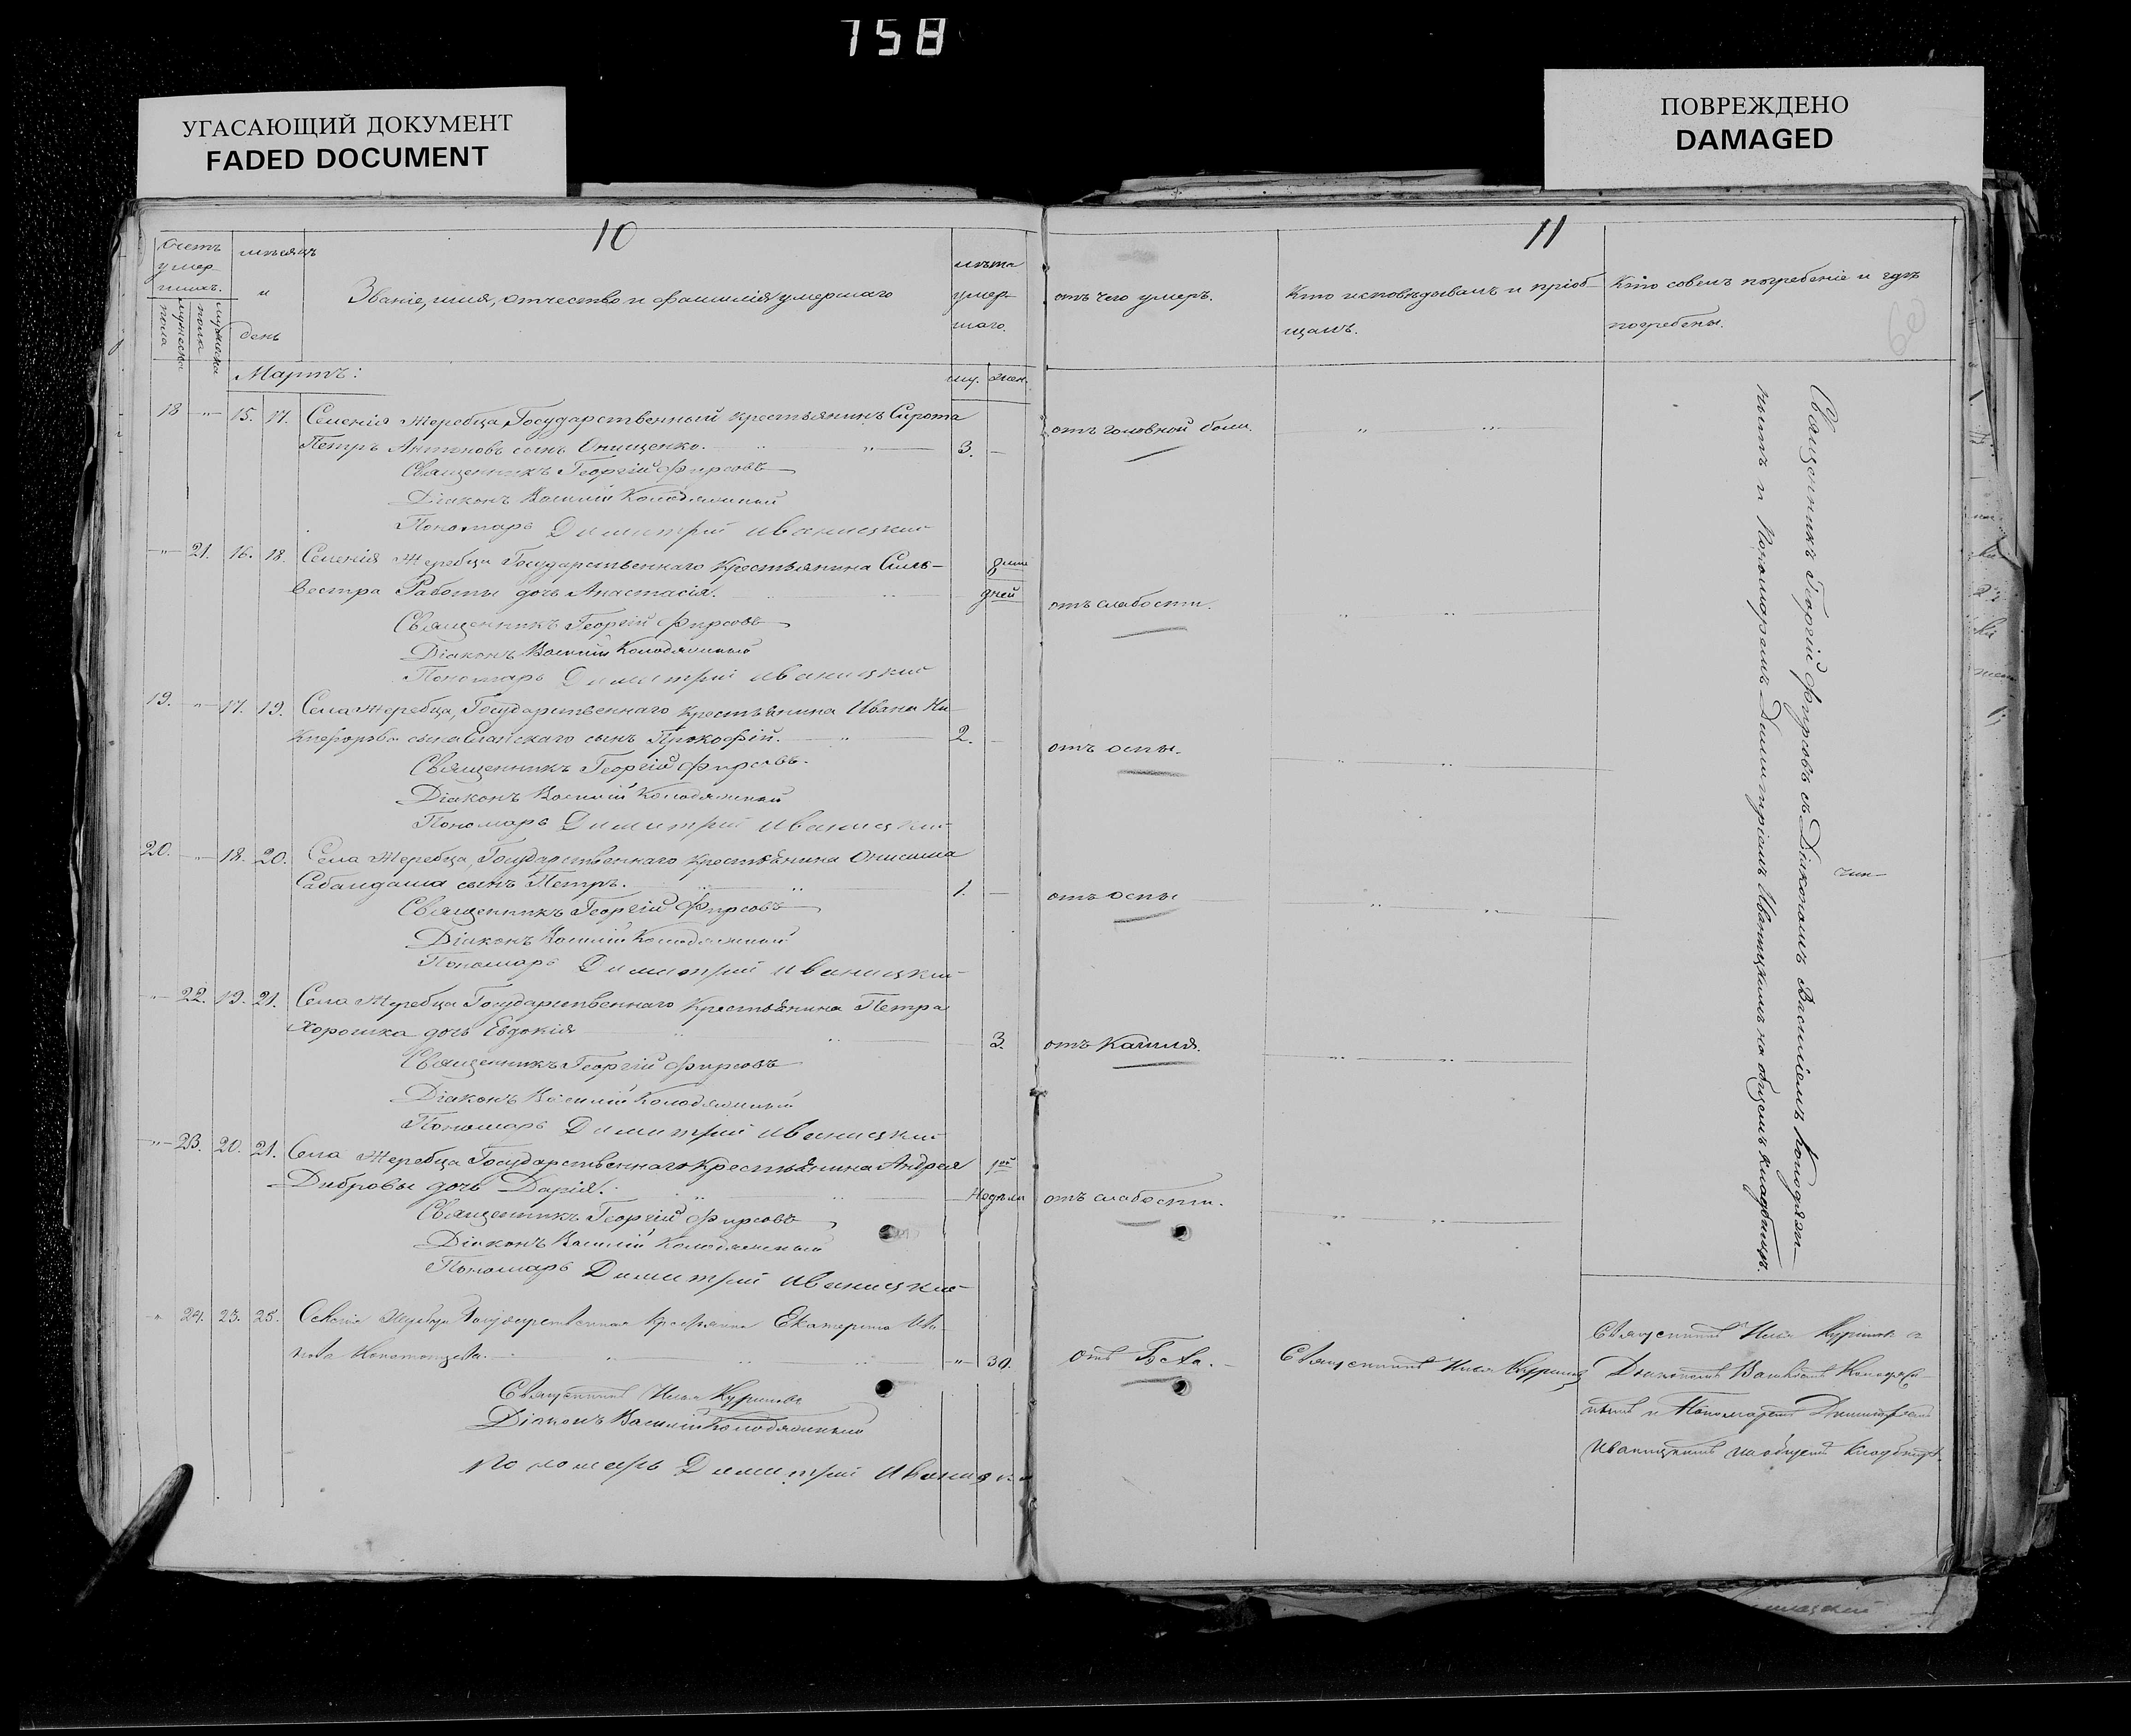 758
УГАСАЮЩИЙ ДОКУМЕНТ
FADED DOCUMENT
ПОВРЕЖДЕНО
DAMAGED
10
11
60
Счетъ умер-шихъ.
мужеска пола
пола
мѣсяцъ и день
Званіе, имя, отчество и фамилія умершаго
лѣта умер-шаго.
му. жен.
отъ чего умеръ.
Кто исповѣдывалъ и пріоб-
щалъ.
Кто совер. погребеніе и гдѣ
погребены.
Мартъ:
18 — „ — 15. 17. Селенія Жеребца Государственный крестьянинъ Сирота
Петръ Антоновъ сынъ Онищенко. 3. — отъ головной боли.
Священникъ Георгій Фирсовъ
Діаконъ Василій Колодяжный
Пономарь Димитрій Иваницкій
— „ — 21. 16. 18. Селенія Жеребца Государственнаго крестьянина Силь-
вестра Работы дочь Анастасія. 8 дней отъ слабости.
Священникъ Георгій Фирсовъ
Діаконъ Василій Колодяжный
Пономарь Димитрій Иваницкій
19. — „ — 17. 19. Села Жеребца, Государственнаго крестьянина Ивана Ни-
кифорова сына сынъ Прокофій. 2. — отъ оспы.
Священникъ Георгій Фирсовъ.
Діаконъ Василій Колодяжный
Пономарь Димитрій Иваницкій
20. — „ — 18. 20. Села Жеребца, Государственнаго крестьянина Онисима
Сабандаша сынъ Петръ. 1. — отъ оспы
Священникъ Георгій Фирсовъ
Діаконъ Василій Колодяжный
Пономарь Димитрій Иваницкій
„ — 22. 19. 21. Села Жеребца Государственнаго Крестьянина Петра
Хорошка дочь Евдокія 3. отъ Кашля.
Священникъ Георгій Фирсовъ
Діаконъ Василій Колодяжный
Пономарь Димитрій Иваницкій
„ — 23. 20. 21. Села Жеребца Государственнаго Крестьянина Андрея
Дибровы дочь Дарія. 1ой Недѣли отъ слабости.
Священникъ Георгій Фирсовъ
Діаконъ Василій Колодяжный
Пономарь Димитрій Иваницкій
Священникъ Георгій Фирсовъ съ Діакономъ Василіемъ Колодяж-
нымъ и Пономаремъ Димитріемъ Иваницкимъ на общемъ кладбищѣ.
„ 24. 23. 25. Жеребца Государственная Крестьянка Екатерина
„ 30. отъ Священникъ Илья
Священникъ Илья
Діаконъ Василій Колодяжный
Пономарь Димитрій
Священникъ Илья съ
Діакономъ Колодяж-
нымъ и Пономаремъ
Иваницкимъ на общемъ кладбищѣ.